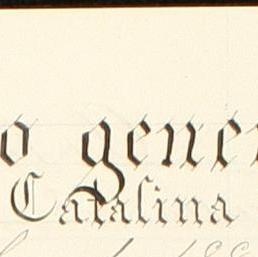 o gener
Catalina